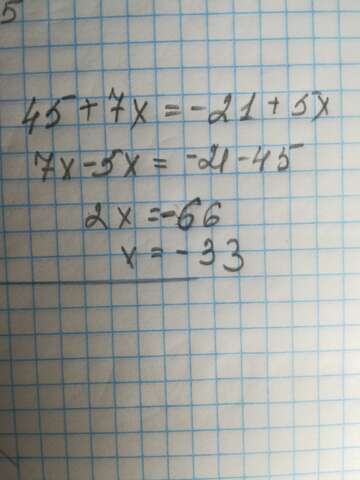 5
45 + 7x = -21 + 5x
7x - 5x = -21 - 45
2x = -66
x = -33